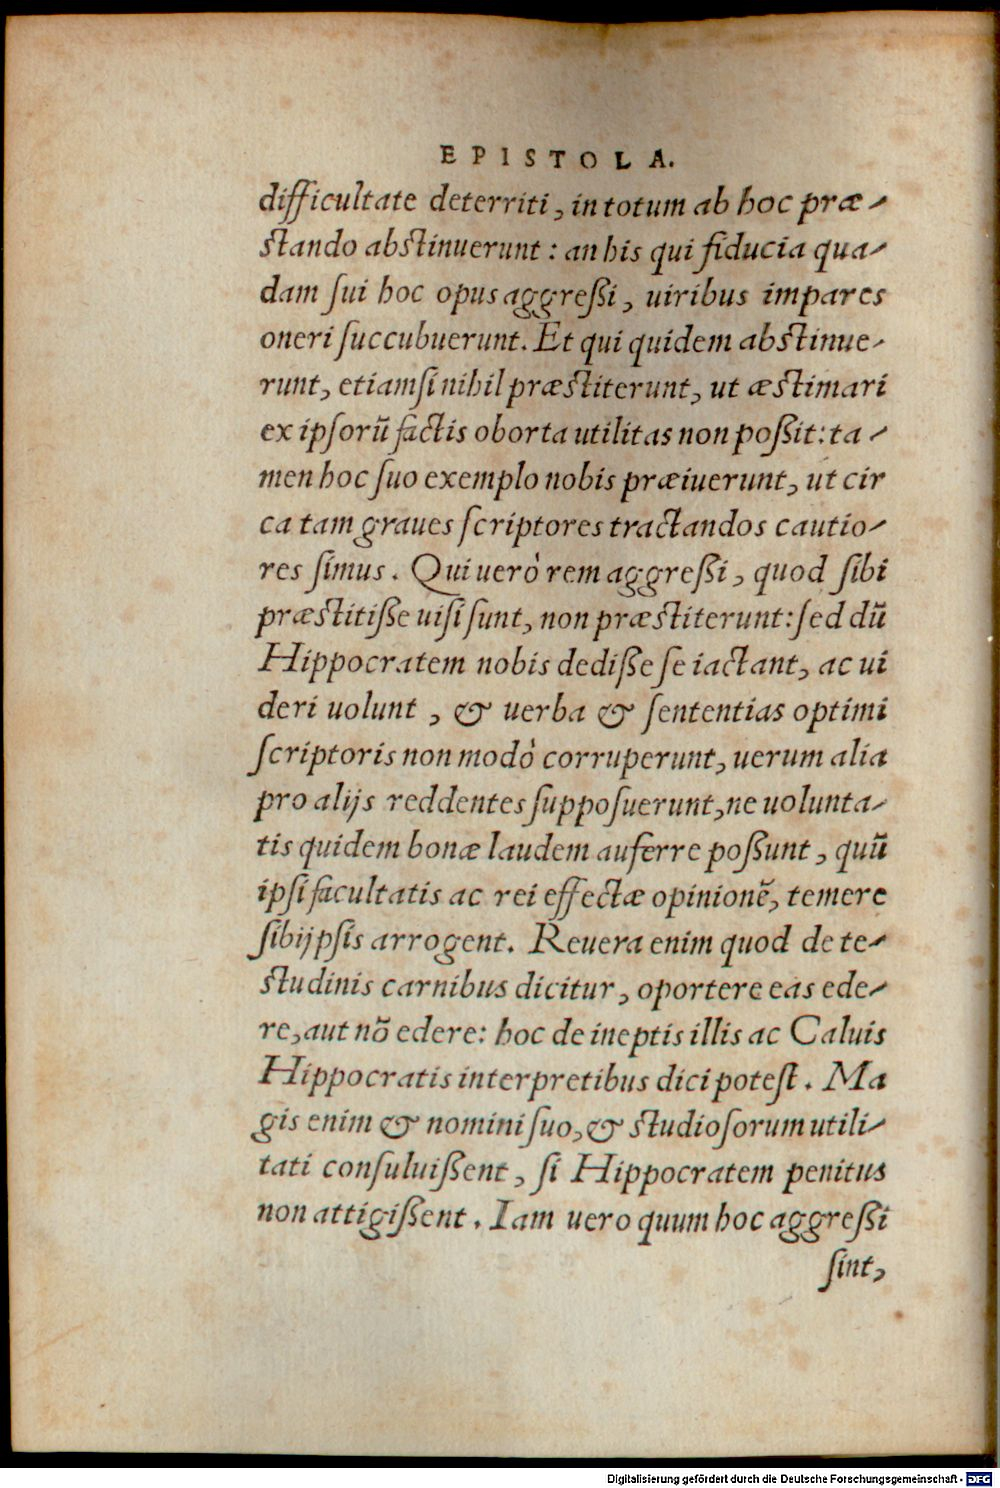 EPISTOLA.
difficultate deterriti, in totum ab hoc præ-
ſtando abſtinuerunt: an his qui fiducia qua-
dam ſui hoc opus aggreßi, uiribus impares
oneri ſuccubuerunt. Et qui quidem abſtinue-
runt, etiamſi nihil præſtiterunt, ut æſtimari
ex ipſorũ factis oborta utilitas non poßit: ta-
men hoc ſuo exemplo nobis præiuerunt, ut cir
ca tam graues ſcriptores tractandos cautio-
res ſimus. Qui uerò rem aggreßi, quod ſibi
præſtitiße uiſi ſunt, non præſtiterunt: ſed dũ
Hippocratem nobis dediße ſe iactant, ac ui
deri uolunt, & uerba & ſententias optimi
ſcriptoris non modò corruperunt, uerum alia
pro alijs reddentes ſuppoſuerunt, ne uolunta-
tis quidem bonæ laudem auferre poßunt, quũ
ipſi facultatis ac rei effectæ opinionẽ, temere
ſibijpſis arrogent. Reuera enim quod de te-
ſtudinis carnibus dicitur, oportere eas ede-
re, aut nõ edere: hoc de ineptis illis ac Caluis
Hippocratis interpretibus dici poteſt. Ma
gis enim & nomini ſuo, & ſtudioſorum utili-
tati conſuluißent, ſi Hippocratem penitus
non attigißent. Iam uero quum hoc aggreßi
ſint,
Digitalisierung gefördert durch die Deutsche Forschungsgemeinschaft - DFG